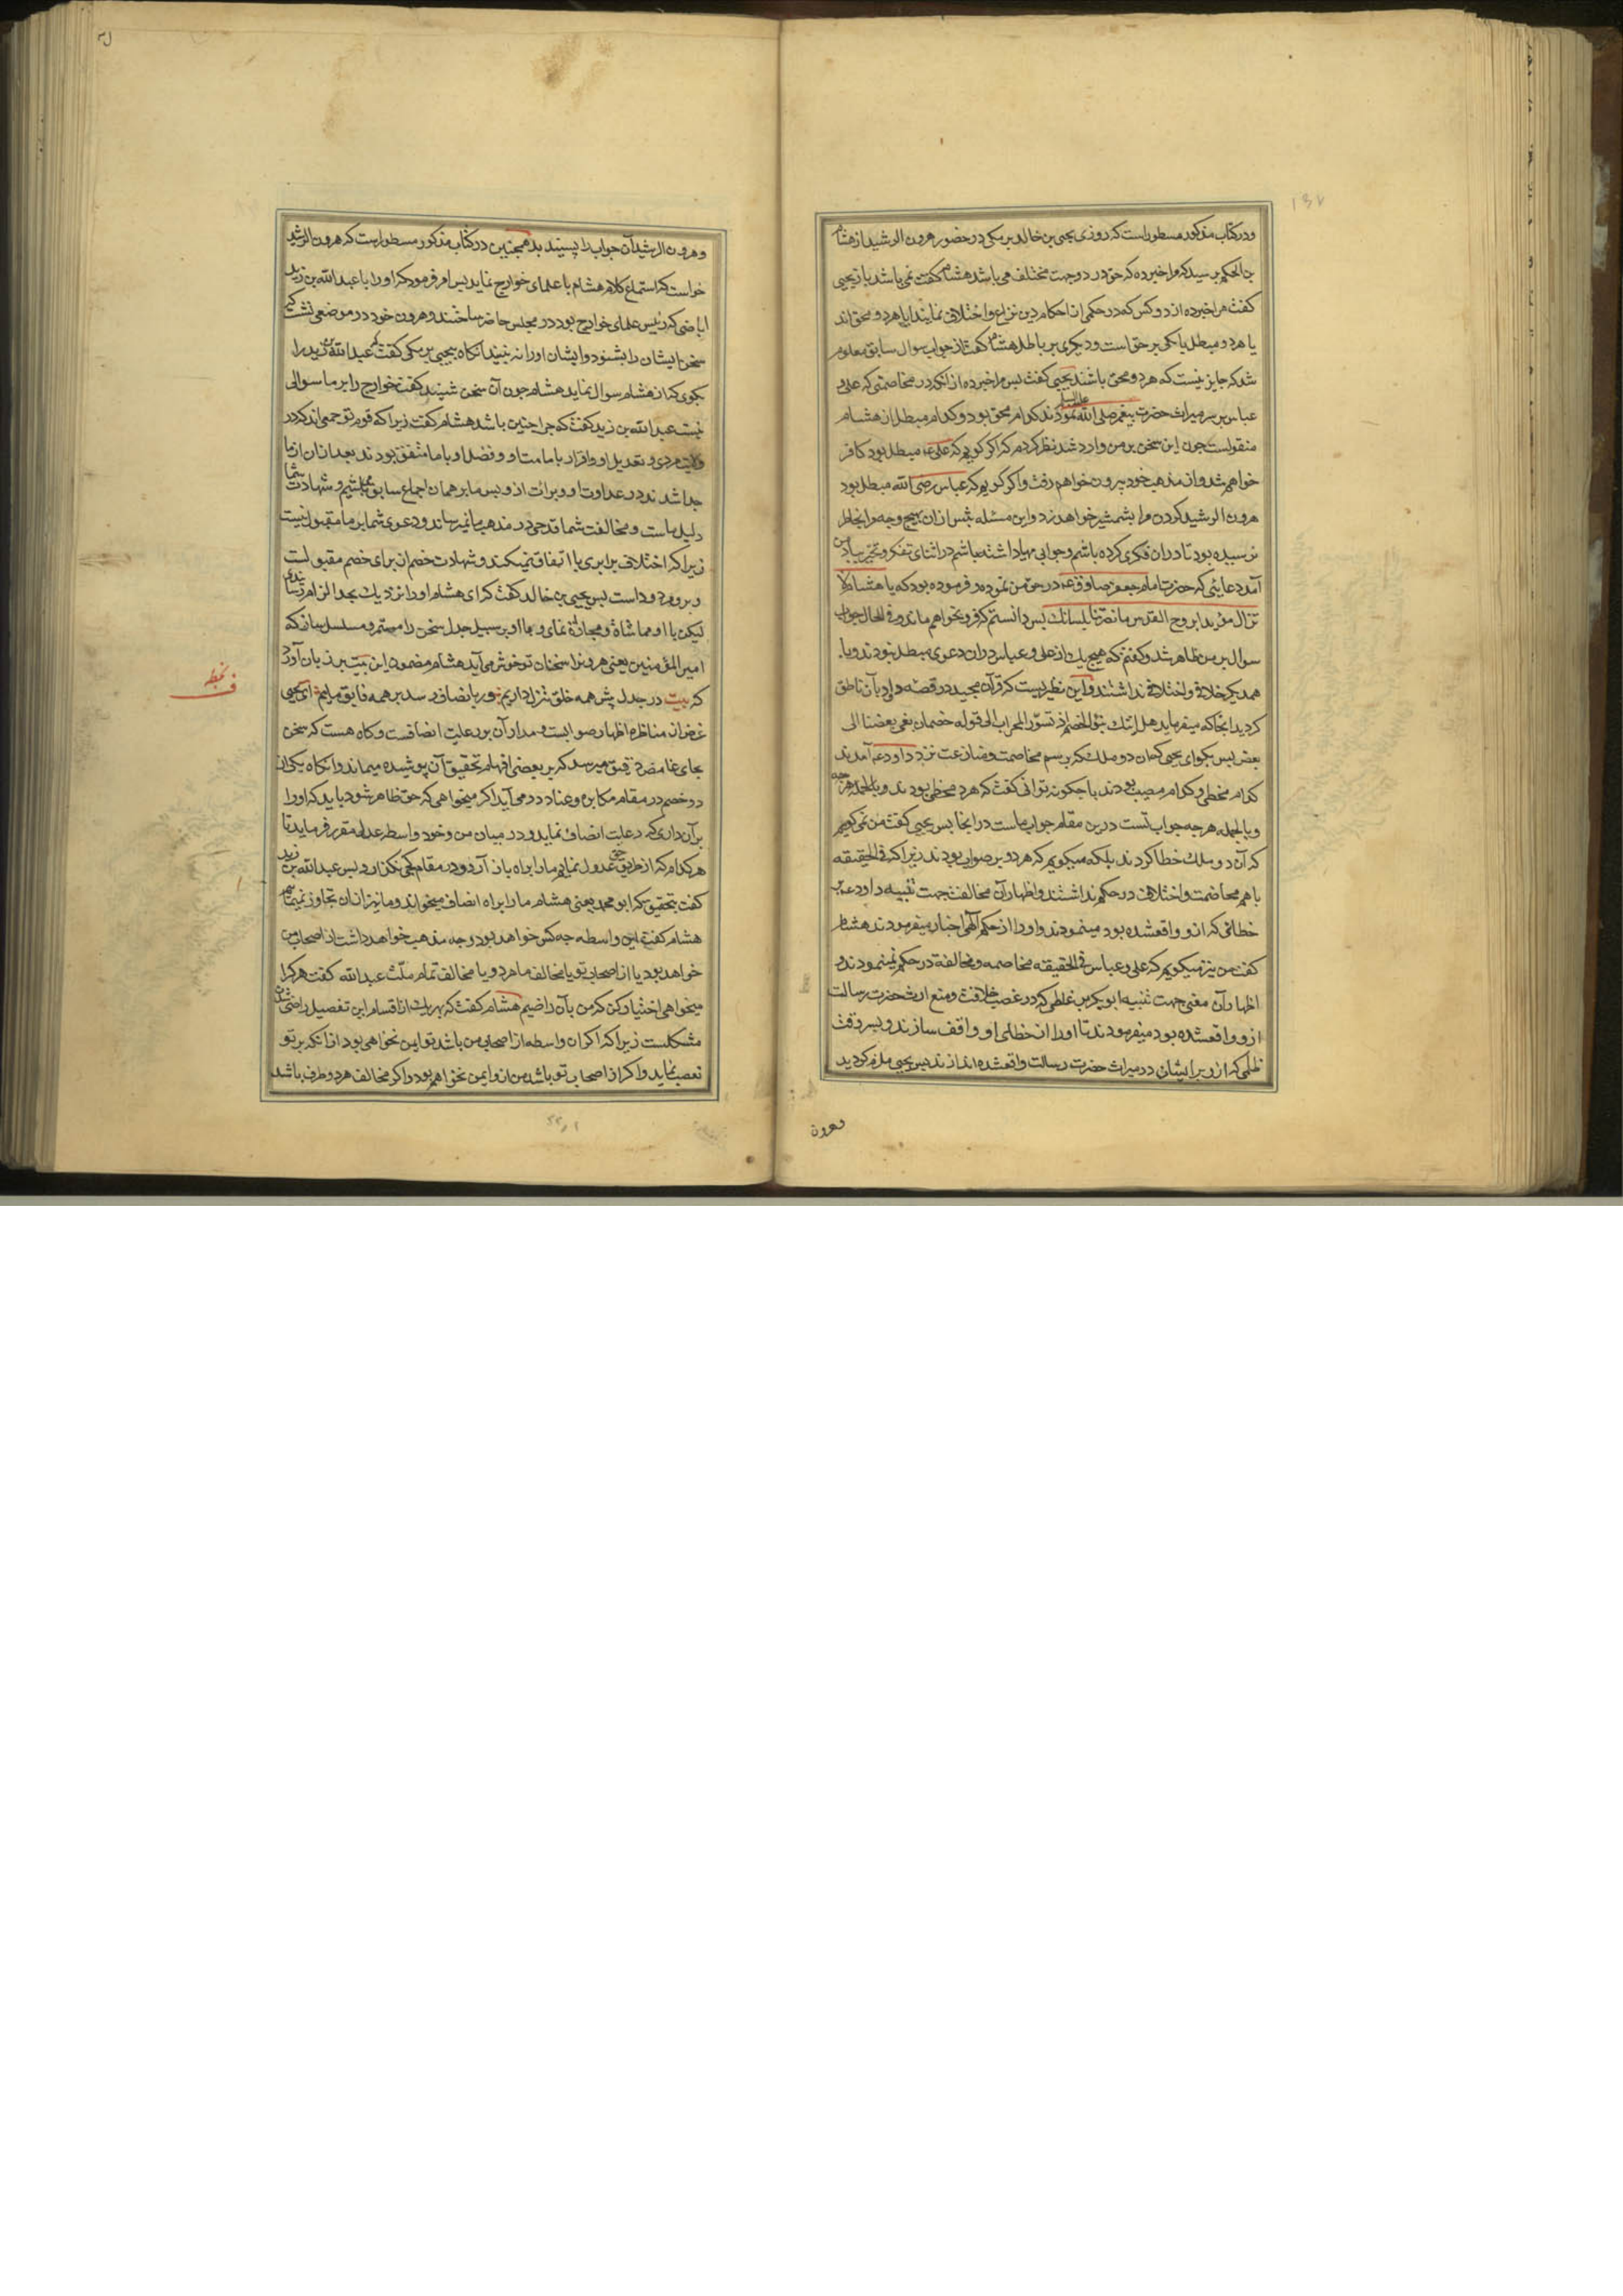 ودر کتاب مذکور مسطور است که روزی یحیی بن خالد برمکی در حضور هرون الرشید از هشام
بن الحکم پرسید که مرا خبر ده که حق در دو جهت مختلف می باشد هشام گفت نمی باشد باز یحیی
گفت مرا خبر ده از دو کس که در حکمی از احکام دین نزاع و اختلاف نمایند ایا هر دو محق اند
یا هر دو مبطل یا یکی بر حق است و دیگری بر باطل هشام گفت از جواب سوال سابق معلوم
شد که جایز نیست که هر دو محق باشند یحیی گفت پس مرا خبر ده از آنکه در مخاصمتی که علی با
عباس بر سر میراث حضرت پیغمبر صلی الله نمودند کدام محق بود و کدام مبطل از هشام
منقولست چون این سخن بر من وارد شد نظر کردم که اگر گویم که علی ع مبطل بود کافر
خواهم شد و از مذهب خود بیرون خواهم رفت و اگر گویم که عباس رضی الله مبطل بود
هرون الرشید گردن مرا بشمشیر خواهد زد و این مسئله پس ازان بهیچ وجه مرا بخاطر
نرسیده بود تا دران فکری کرده باشم و جوابی مهیا داشته باشم در اثنای تفکر و تحیر بیاد من
آمد دعایی که حضرت امام جعفر صادق ع در حق من نموده و فرموده بود که یا هشام لا
تزال مؤیدا بروح القدس ما نصرتنا بلسانک پس دانستم که فرو نخواهم ماند و فی الحال جواب
سوال بر من ظاهر شد و گفتم که هیچ یک از علی و عباس دران دعوی مبطل نبودند و با
همدیگر خلاف و اختلافی نداشتند و این نظیر نیست که قرآن مجید در قصه داود بآن ناطق
گردید انجا که میفرماید هل اتیک نبؤ الخصم اذ تسوّر المحراب الی قوله خصمان بغی بعضنا الی
بعض پس بگو ای یحیی که ان دو ملک که برسم مخاصمت و منازعت نزد داود ع آمدند
کدام مخطی و کدام مصیب بودند یا چگونه توانی گفت که هر دو مخطی بودند و بالجمله هرچه
وبالجمله هرچه جواب تست درین مقام جواب ماست در انجا پس یحیی گفت من نمی گویم
که آن دو ملک خطا کردند بلکه میگویم که هر دو بر صواب بودند زیرا که فی الحقیقه
با هم مخاصمت و اختلاف در حکم نداشتند و اظهار آن مخالفت جهت تنبیه داود ع بر
خطائی که ازو واقعشده بود مینمودند و او را از حکم آلهی اخبار میفرمودند هشام
گفت من نیز میگویم که علی و عباس فی الحقیقه مخاصمه و مخالفة در حکم نمینمودند و
اظهار آن معنی جهت تنبیه ابوبکر بر غلطی که در غصب خلافت و منع ارث حضرت رسالت
ازو واقعشده بود میفرمودند تا او را از خطای او واقف سازند و بر وقت
ظلمی که ازو بر ایشان در میراث حضرت رسالت واقعشده اندازند پس یحیی ملزم گردید
وهرون
وهرون الرشید آن جواب را پسندید همچنین در کتاب مذکور مسطور است که هرون الرشید
خواست که استماع کلام هشام با علمای خوارج نماید پس امر فرمود که او را با عبد الله بن زید
اباضی که رئیس علمای خوارج بود در مجلس حاضر ساختند و هرون خود در موضعی نشست که
سخن ایشان را بشنود و ایشان او را نه بینند انکاه یحیی برمکی گفت که عبد الله بن زید را
بگوی که از هشام سوال نماید هشام چون آن سخن شنید گفت خوارج را بر ما سوالی
نیست عبد الله بن زید گفت که چرا چنین باشد هشام گفت زیرا که قوم تو جمعی اند که در
ولایت مردی و تعدیل او و اقرار بامامت او و فضل او با ما متفق بودند بعد ازان از ما
جدا شدند در عداوت او و برائت ازو پس ما بر همان اجماع سابق میباشیم و شهادت شما
دلیل ماست و مخالفت شما قدحی در مذهب ما نمیرساند و دعوی شما بر ما مقبول نیست
زیرا که اختلاف برابری با اتفاق نمیکند و شهادت خصم از برای خصم مقبولست
و برو مردود است پس یحیی بن خالد گفت که ای هشام او را نزدیک بحد الزام رسانیدی
لیکن با او مماشاة و مجاراة نمای و با او بر سبیل جدل سخن را مستمر و مسلسل ساز که
امیر المؤمنین یعنی هرون را سخنان تو خوش می آید هشام مضمون این بیت بر زبان آورد
که بیت در جدل پیش همه خلق تنزل داریم ور بانصاف رسد بر همه فایق ماییم ای یحیی
غرض از مناظره اظهار صوابست و مدار آن بر رعایت انصافست و گاه هست که سخن
بجای غامض دقیق میرسد که بر بعضی افهام تحقیق آن پوشیده میماند و انکاه یکی از
دو خصم در مقام مکابره و عناد در می آید اگر میخواهی که حق ظاهر شود باید که او را
بر آن داری که رعایت انصاف نماید و در میان من و خود واسطه عدلی مقرر فرماید تا
هر کدام که از طریق حق عدول نمایم ما را براه باز آرد و در مقام کجی نگذارد پس عبد الله بن زید
گفت بتحقیق که ابو محمد یعنی هشام ما را براه انصاف میخواند و ما نیز ازان تجاوز نمینماییم
هشام گفت این واسطه چه کس خواهد بود و چه مذهب خواهد داشت از اصحاب من
خواهد بود یا از اصحاب تو یا مخالف ما هر دو یا مخالف تمام ملت عبد الله گفت هر کرا
میخواهی اختیار کن که من بآن راضیم هشام گفت که بهر یک از اقسام این تفصیل راضی شدن
مشکلست زیرا که اگر ان واسطه از اصحاب من باشد تو ایمن نخواهی بود از آنکه بر تو
تعصب نماید و اگر از اصحاب تو باشد من ازو ایمن نخواهم بود و اگر مخالف هر دو طرف باشد